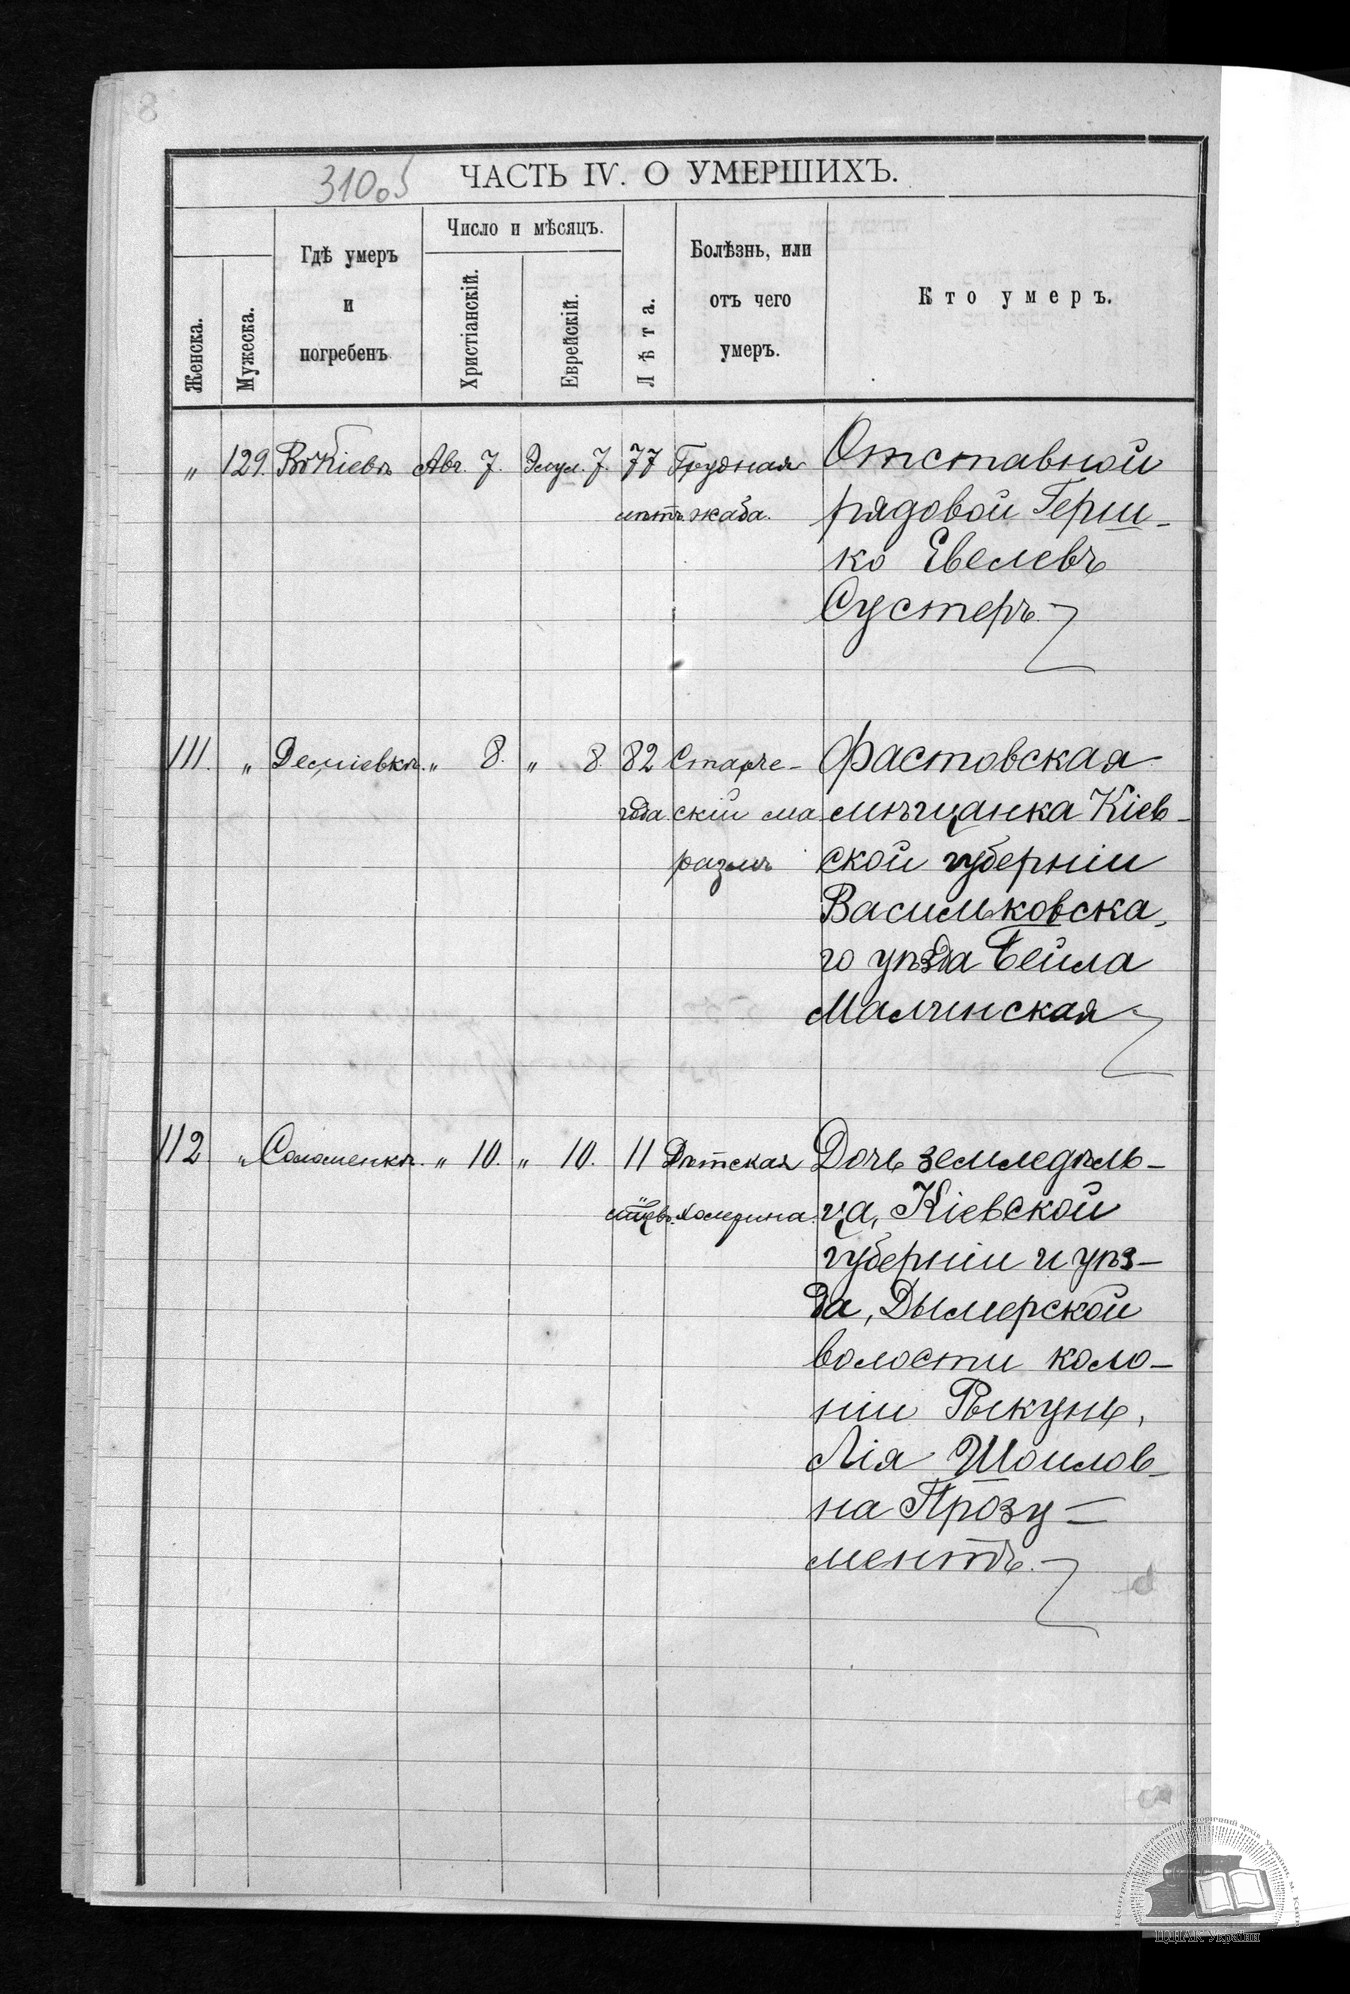 310об
ЧАСТЬ IV. О УМЕРШИХЪ.
Женска.
Мужеска.
Гдѣ умеръ
и
погребенъ
Число и мѣсяцъ.
Христіанскій.
Еврейскій.
Лѣта.
Болѣзнь, или
отъ чего
умеръ.
Кто умеръ.
„ 129. Въ Кіевѣ Авг. 7. Элул. 7. 77 Грудная Отставной
лѣтъ жаба. рядовой Герш-
ко Евелевъ
Сустеръ.
111. „ Деміевкѣ. „ 8. „ 8. 82 Старче- Фастовская
года скій ма мѣщанка Кіев-
размъ ской губерніи
Васильковска-
го уѣзда Бейла
Малинская
112 „ Соломенкѣ. „ 10. „ 10. 11 Дѣтская Дочь земледѣль-
холерина. ца, Кіевской
губерніи и уѣз-
да, Дымерской
волости коло-
ніи Рыкунь,
Лія Шоилов-
на Прозу-
ментъ.
ЦДІАК України